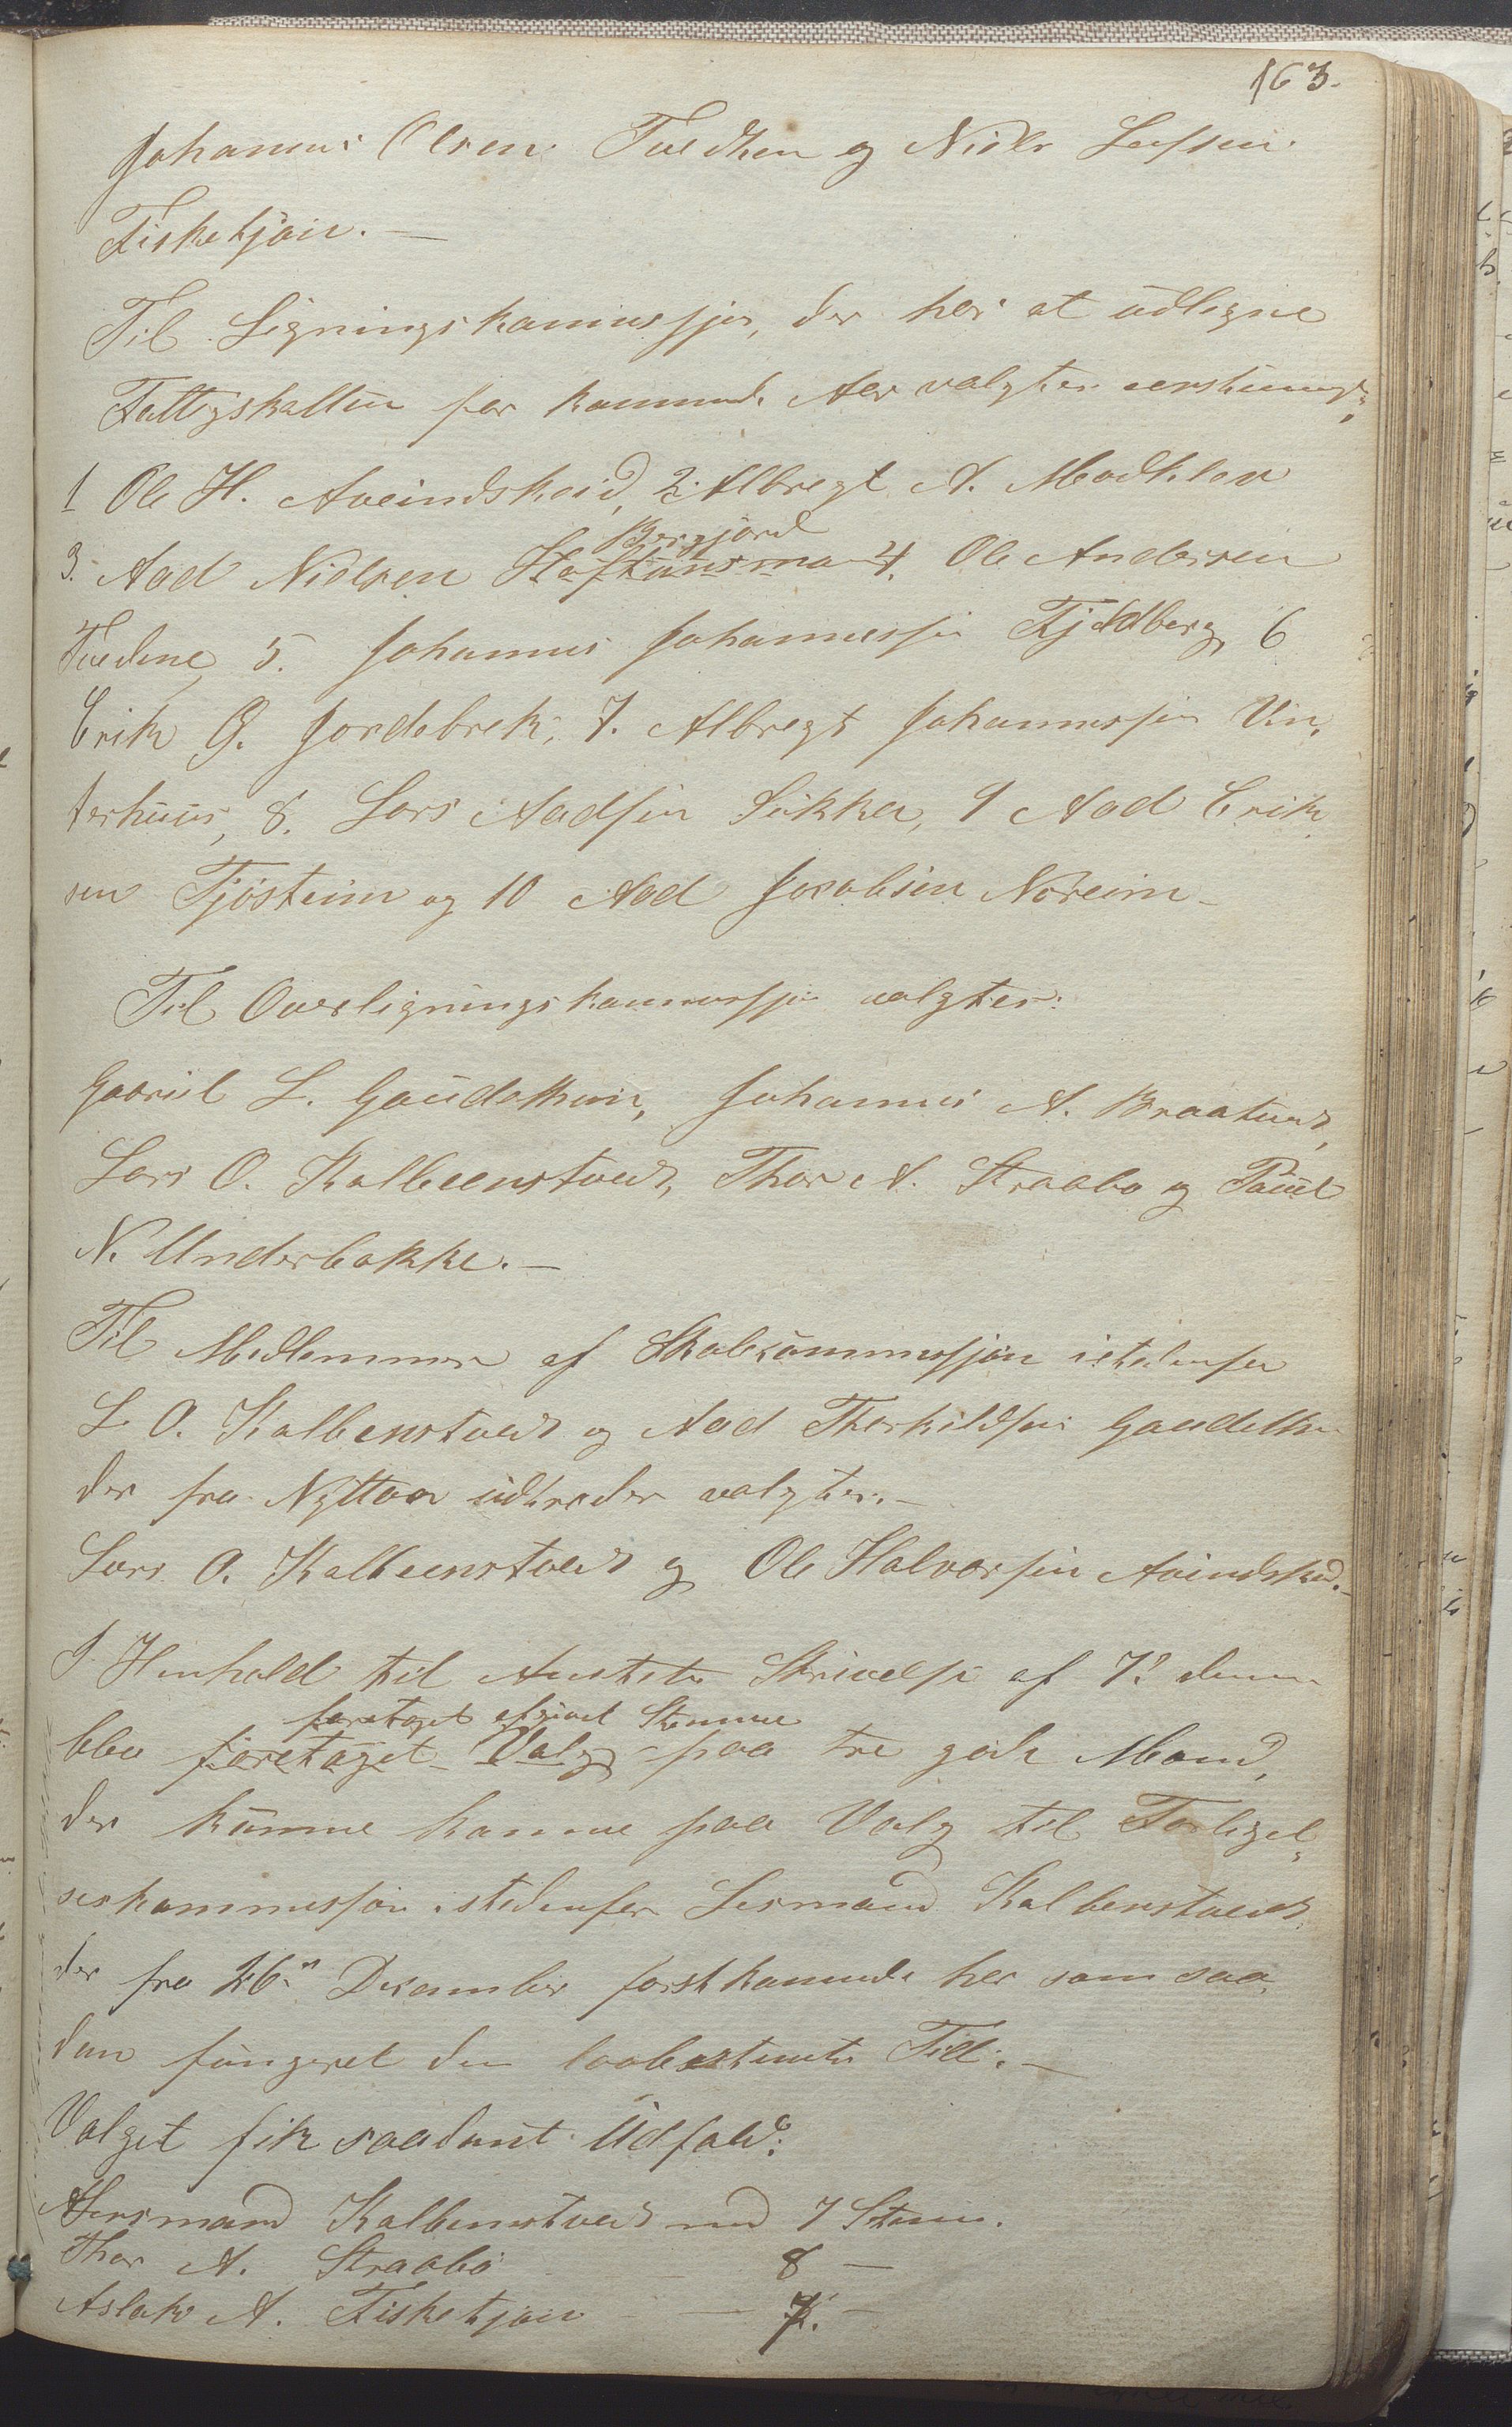 163.
Johannes Olsen Tvedten og Niels Larsen
Fisketjøn. —
Til Ligningskommissjon, der har at udligne
Fattigskatten for kommende Aar valgtes eenstemmigt,
1 Ole H. Aveindskeid, 2. Albregt A. Modhlev
3. Aad Nielsen Haftunsmo Bergjord 4. Ole Andersen
Tvedene, 5. Johannes Johannessen Fjeldberg, 6
Erik G. Jordebrek, 7. Albregt Johannessen Vin,
terhuus, 8. Lars Aadsen Sukka, 9 Aad Erik
sen Tjøsteim og 10 Aad Jacobsen Noreim –
Til Overligningskommissjon valgtes:
Gabriel L. Gaudethun, Johannes A. Braatveit,
Lars O. Kalbeenstvedt, Thor A. Straabø og Paul
N. Underbakke. —
Til Medlemmer af Skolekommissjon istedenfor
L O. Kalbenstvedt og Aad Therkildsen Gaudethun
der fra Nyttaar udtræder valgtes. —
Lars O. Kalbeenstvedt og Ole Halvorsen Aveindskeid. –
I Henhold til Amtets Skrivelse af 7' dennes
blev foretaget Valg foretaget afgivet Stemme paa tre gode Mænd,
der kunne komme paa Valg til Forligel,
seskommissjon istedenfor Lensmand Kalbenstvedt
der fra 26de December førstkommende har som saa,
dan fungeret den lovbestemte Tid. —
Valget fik saadant Udfald:
Lensmand Kalbenstvedt med 7 Stem.
Thor A. Straabø — 8 —
Aslak A. Fisketjøn — 7. —